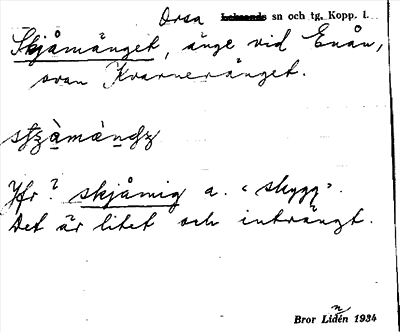 Orsa sn och tg. Kopp. l.
Skjåmänget, änge vid Enån,
ovan Kvarneränget.
Jfr? skjåmig a. "skygg".
Det är litet och inträngt.
Bror Lidén 1934